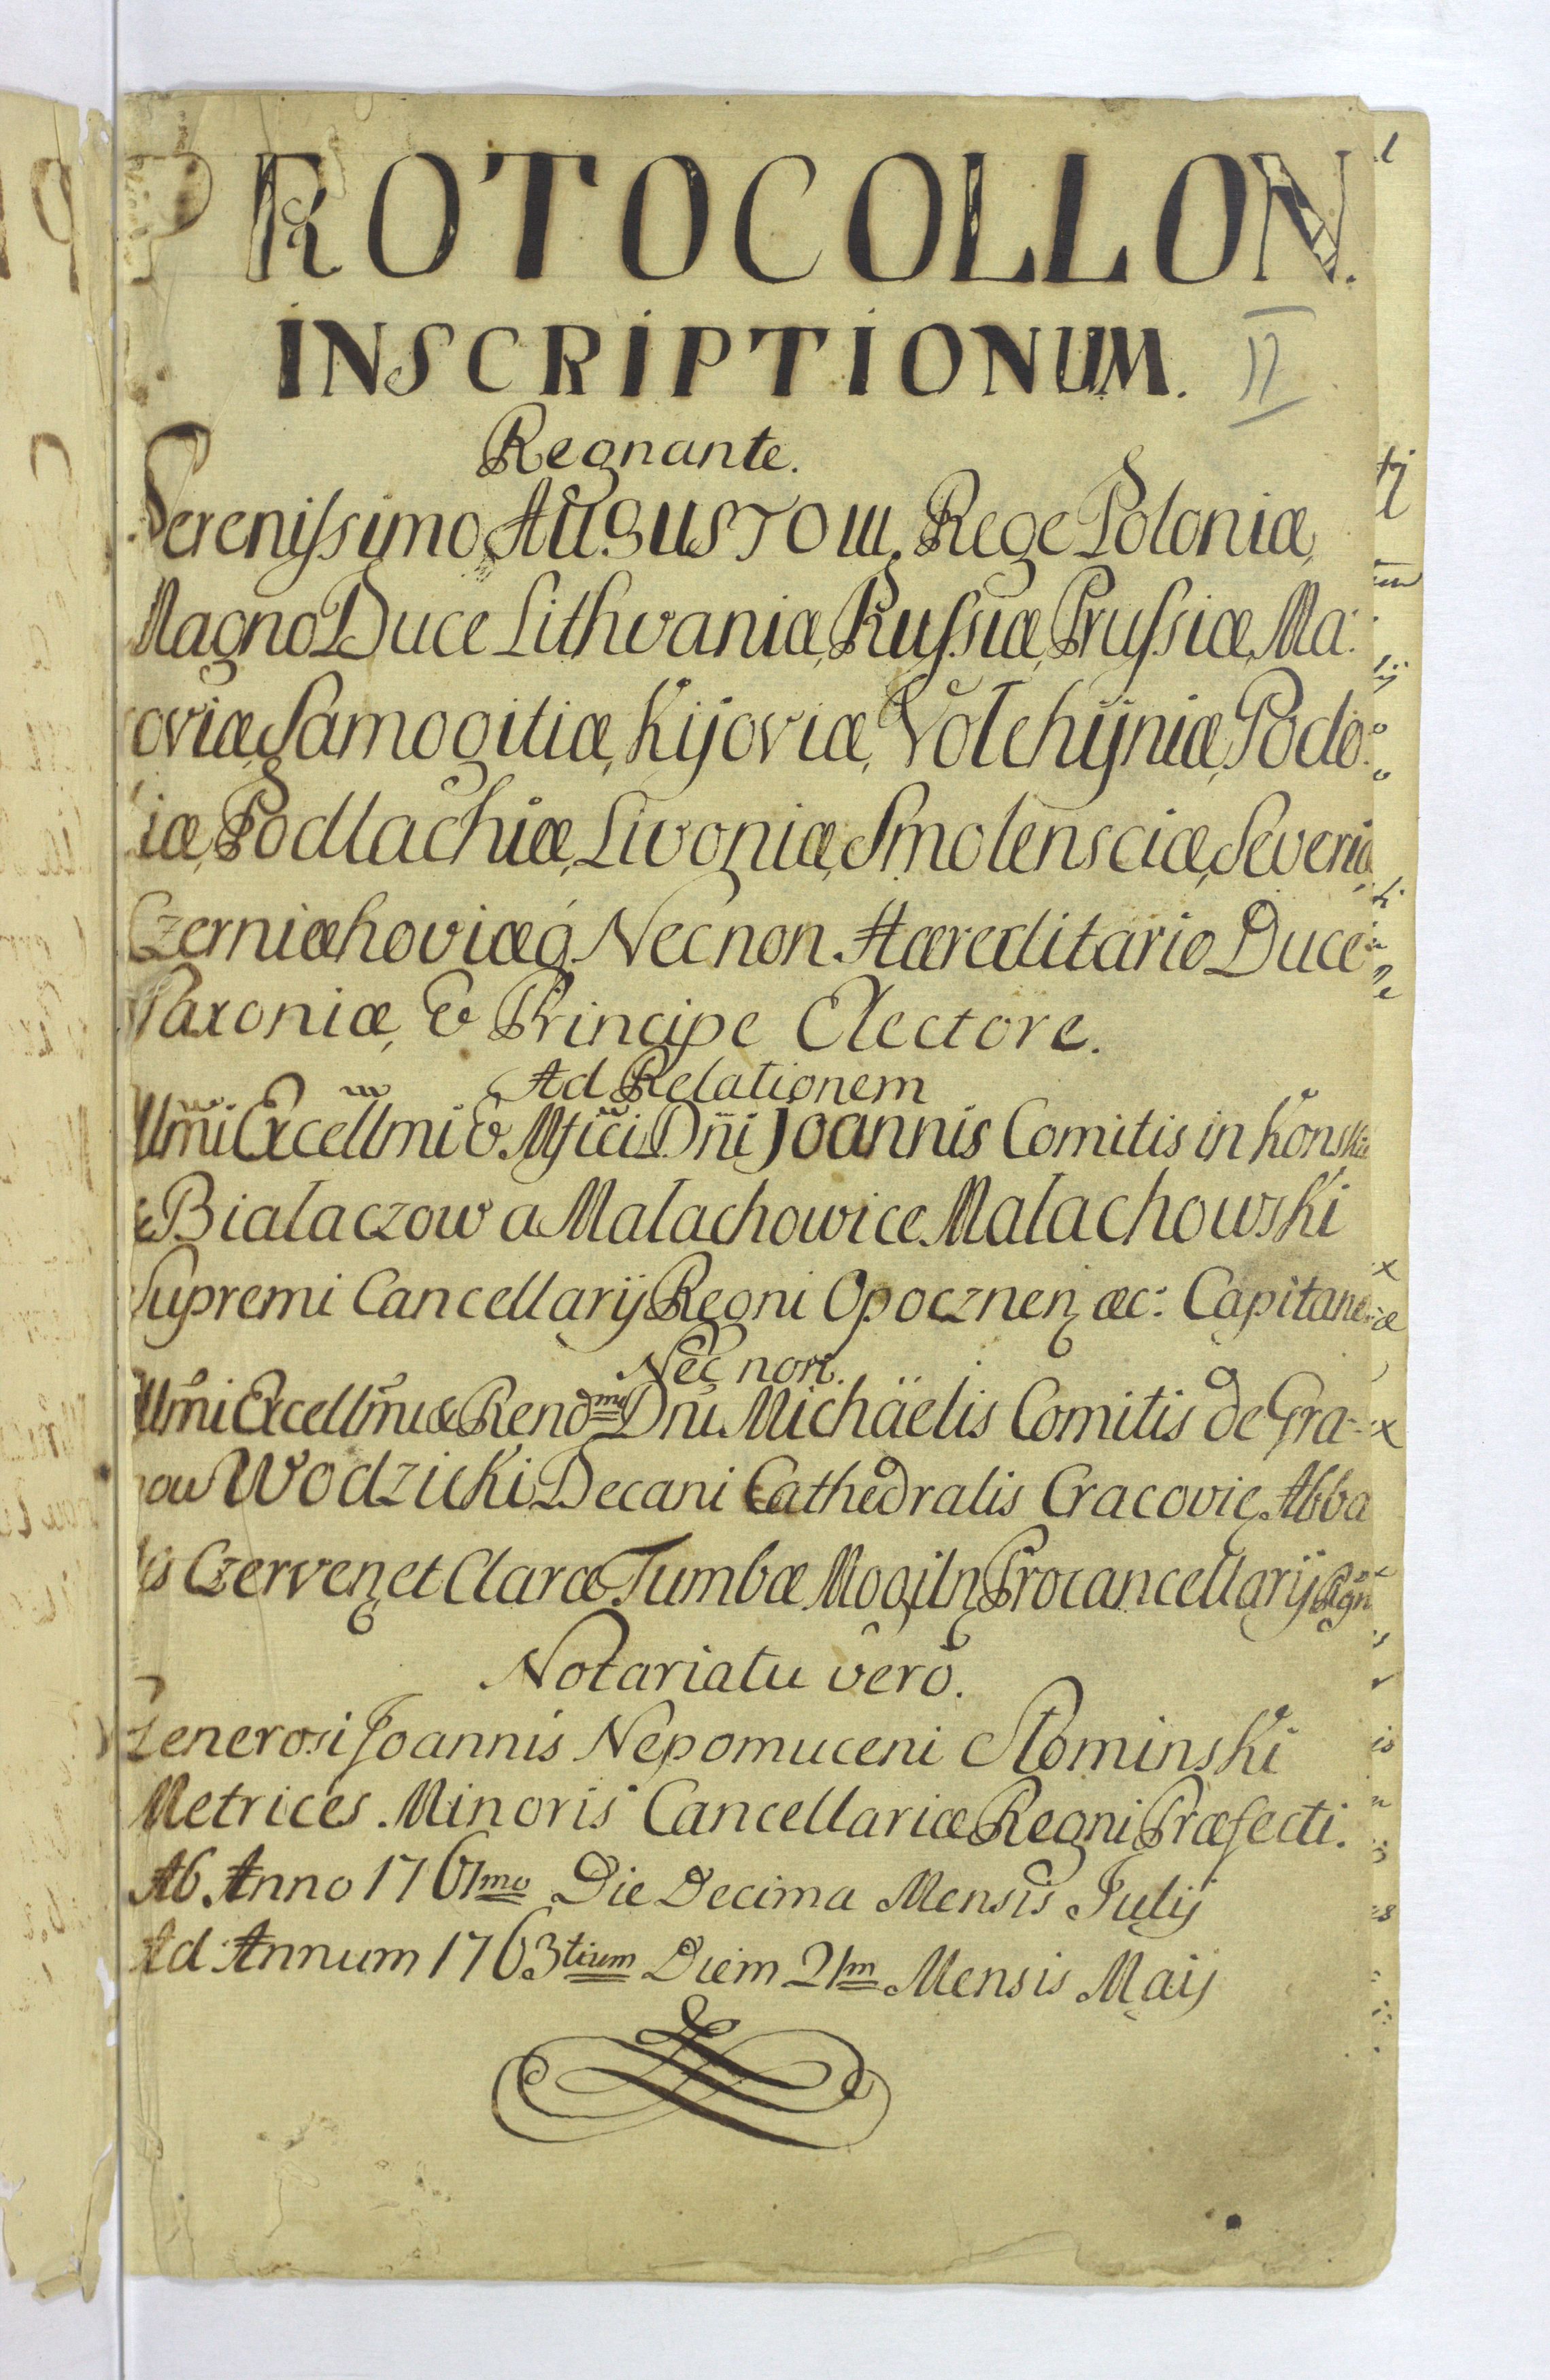 PROTOCOLLON.
INSCRIPTIONUM. II
Regnante.
Serenissimo AUGUSTO III. Rege Poloniæ,
Magno Duce Lithvaniæ, Russiæ, Prussiæ, Ma:
oviæ, Samogitiæ, Kijoviæ, Volchijniæ, Podo:
iæ, Podlachiæ, Livoniæ, Smolensciæ, Severiæ
Czerniæhoviæq́ Necnon Hæreditario Duce
Saxoniæ, & Principe Electore.
Ad Relationem
Illmi Excellmi & Mfici Dñi Joannis Comitis in Konskie
& Bialaczow a Malachowice Malachowski
Supremi Cancellarij Regni Opocznen æc: Capitanei
Nec non.
Illmi Excellmi & Rendmi Dni Michäelis Comitis de Gra-
now Wodzicki Decani Cathedralis Cracovię Abba
tis Czerven et Claræ Tumbæ Mogiln Procancellarij Rgni
Notariatu verò.
Generosi Joannis Nepomuceni Slominski
Metrices Minoris Cancellariæ Regni Præfecti.
Ab Anno 1761mo Die Decima Mensis Julij
Ad Annum 1763tium Diem 21m Mensis Maij